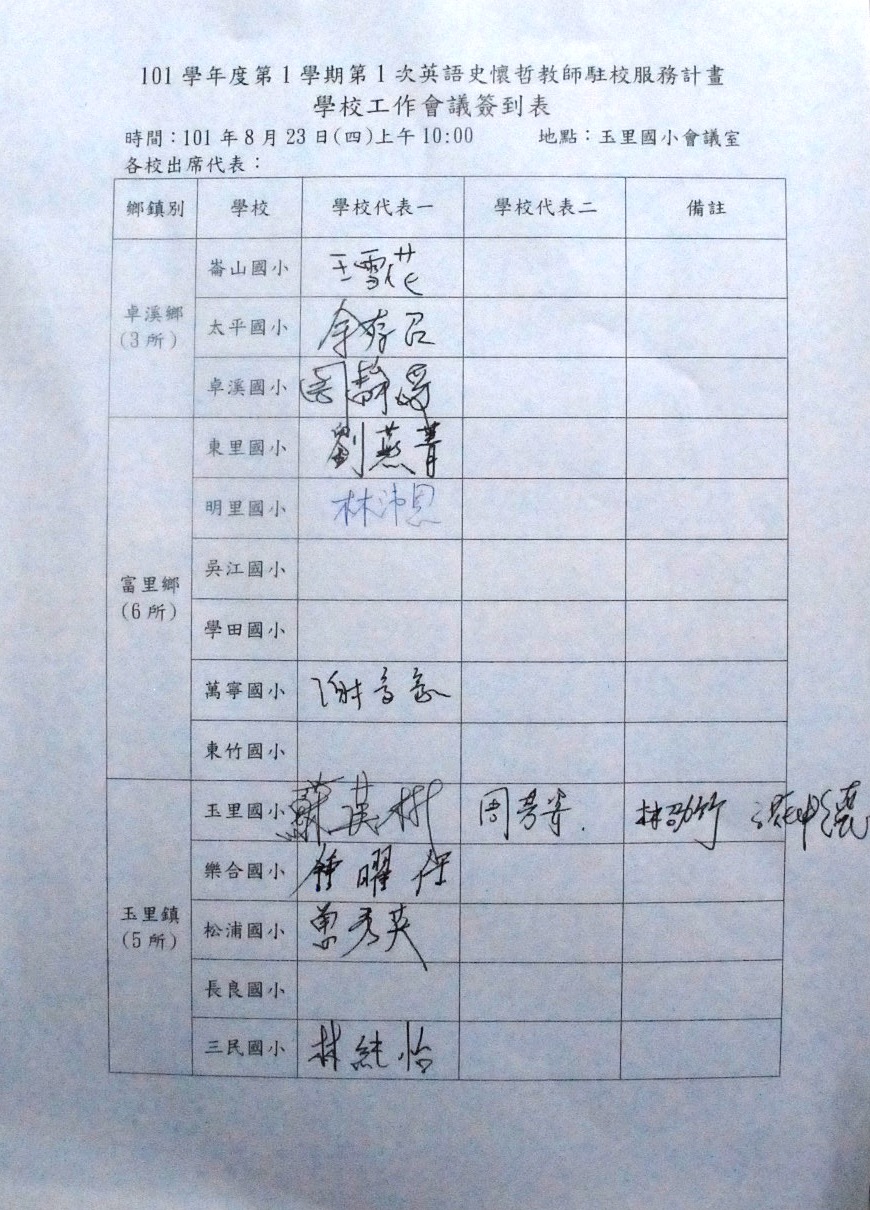 101 學年度第 1 學期第 1 次英語史懷哲教師駐校服務計畫
學校工作會議簽到表
時間：101 年 8 月 23 日(四)上午 10:00 地點：玉里國小會議室
各校出席代表：
鄉鎮別 學校 學校代表一 學校代表二 備註
卓溪鄉
(3 所)
崙山國小 王雪花
太平國小 余存召
卓溪國小
富里鄉
(6 所)
東里國小 劉燕菁
明里國小 林沛恩
吳江國小
學田國小
萬寧國小 謝
東竹國小
玉里鎮
(5 所)
玉里國小 蘇漢彬 周芳 林劭竹
樂合國小 鍾曜保
松浦國小 曾秀英
長良國小
三民國小 林純怡